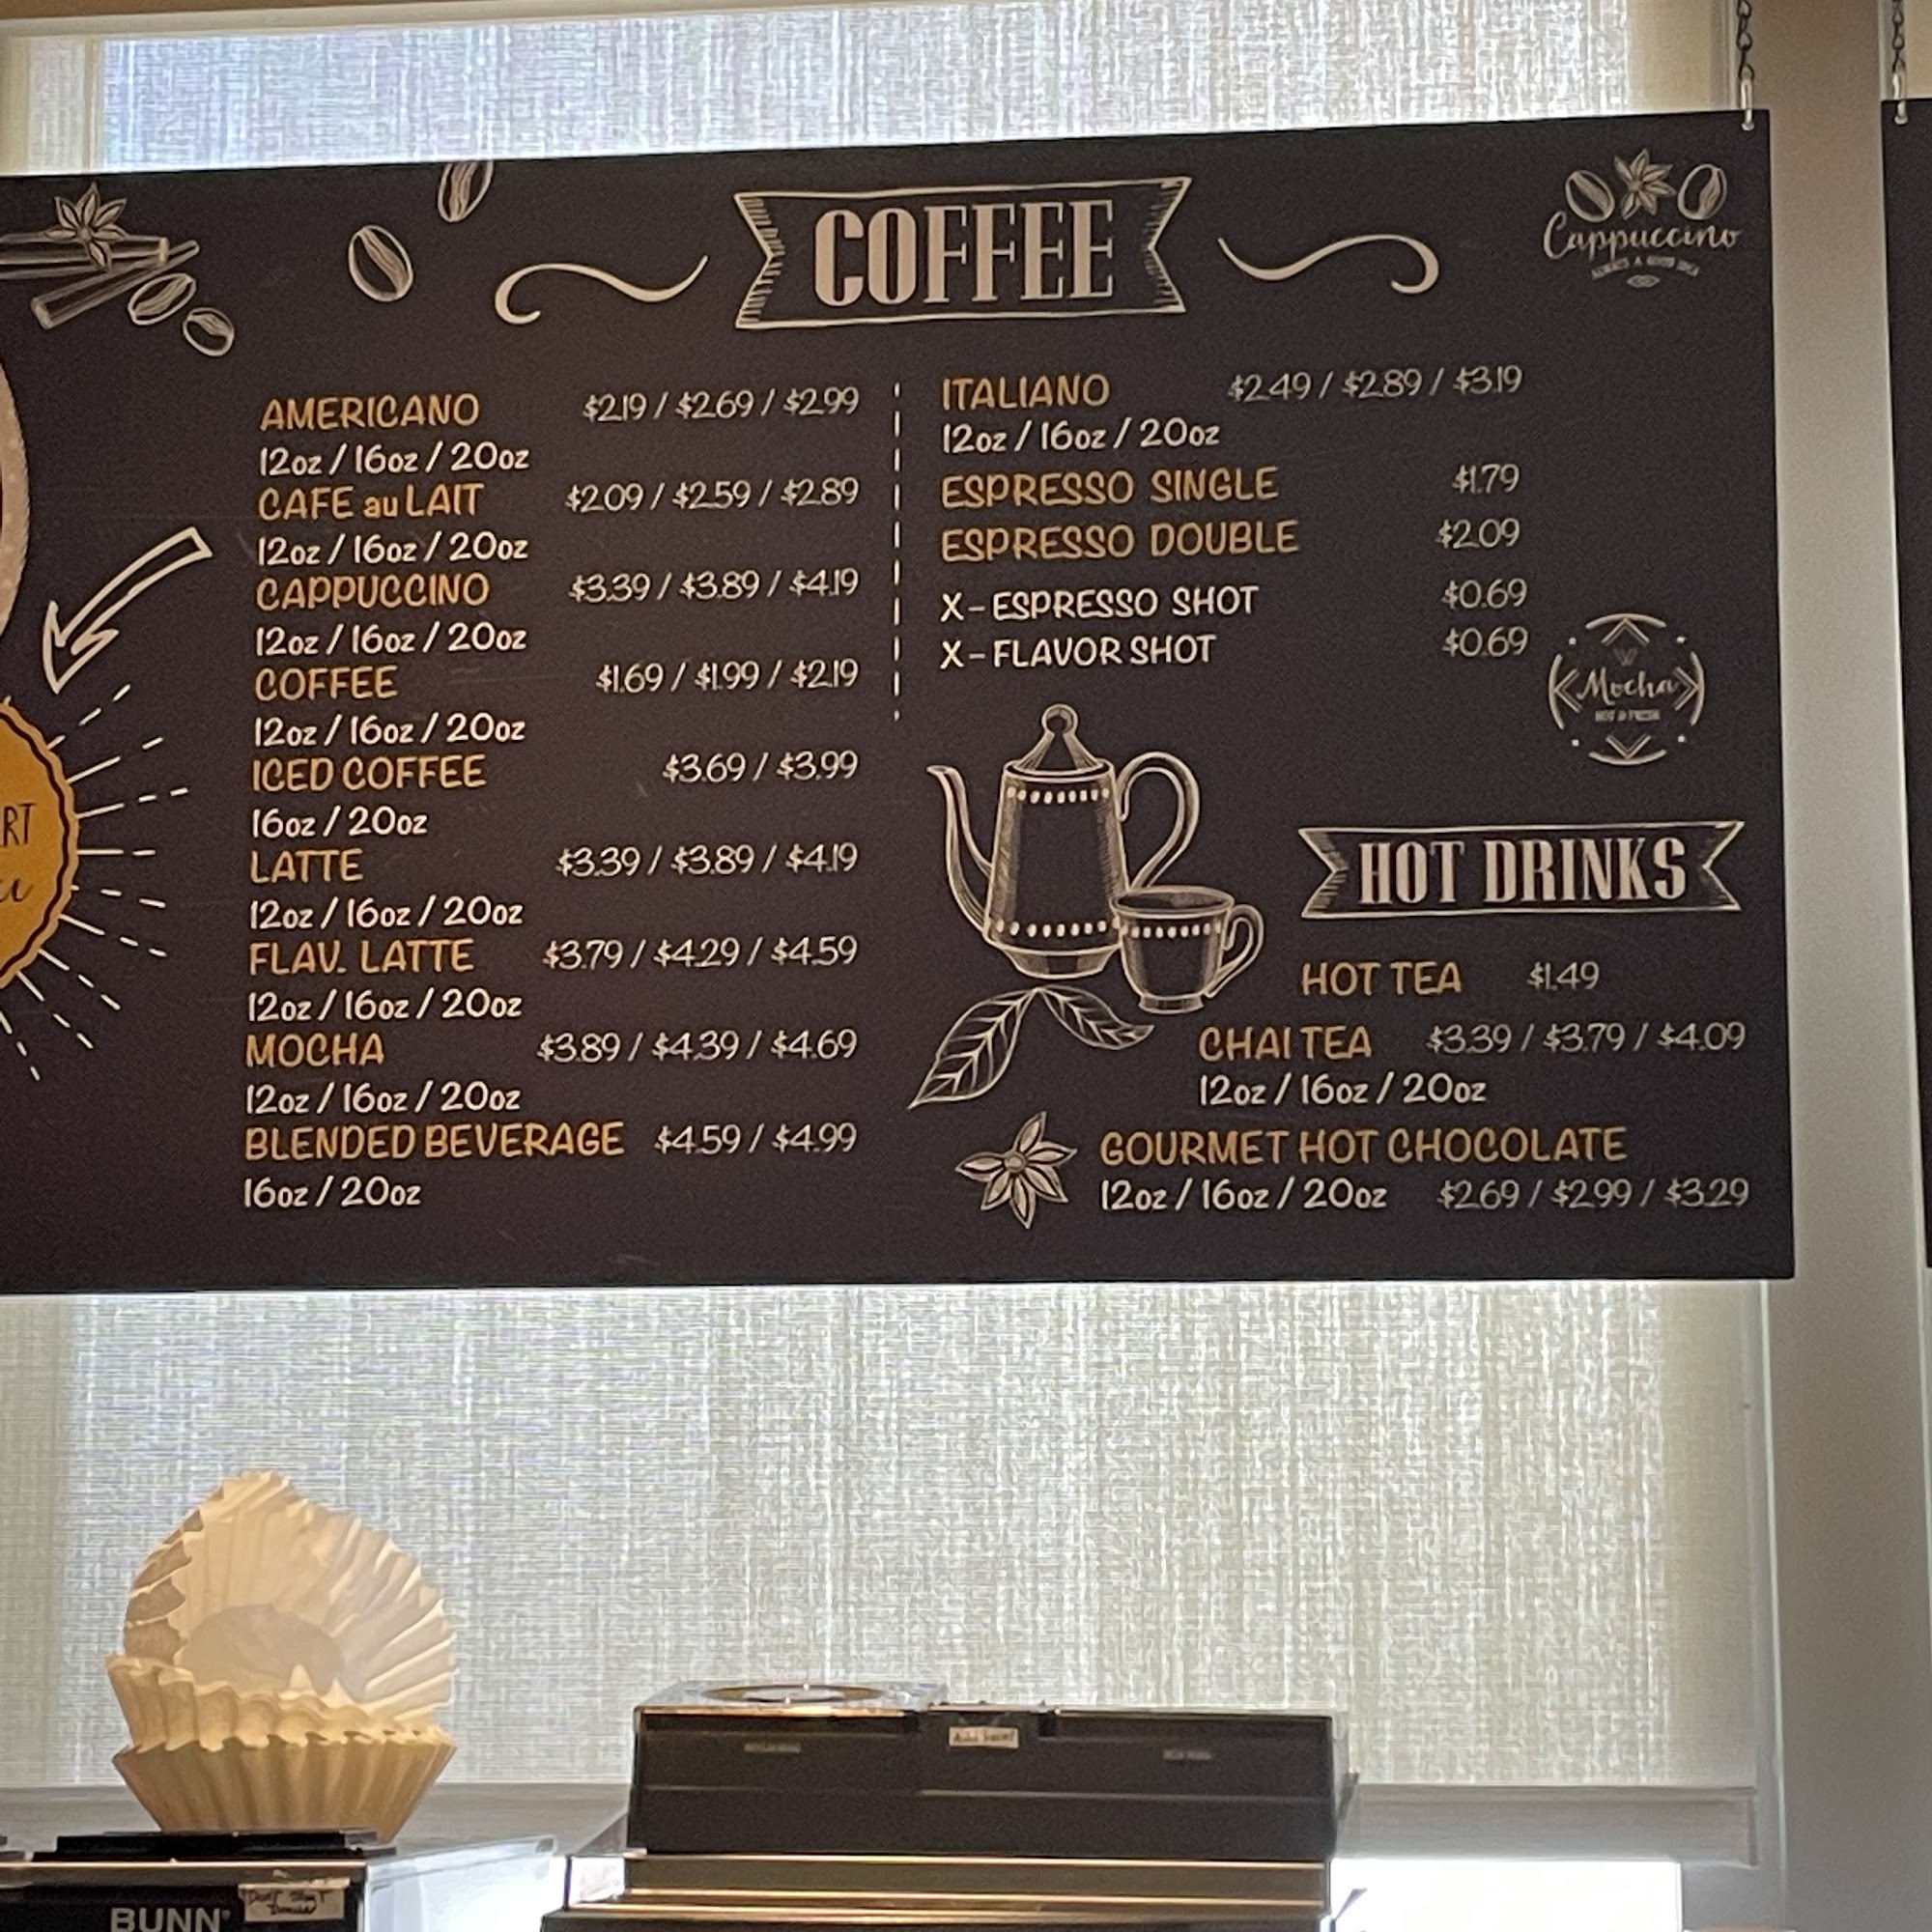 COFFEE
Cappuccino
ALWAYS A GOOD IDEA
AMERICANO $2.19 / $2.69 / $2.99
12oz / 16oz / 20oz
CAFE au LAIT $2.09 / $2.59 / $2.89
12oz / 16oz / 20oz
CAPPUCCINO $3.39 / $3.89 / $4.19
12oz / 16oz / 20oz
COFFEE $1.69 / $1.99 / $2.19
12oz / 16oz / 20oz
ICED COFFEE $3.69 / $3.99
16oz / 20oz
LATTE $3.39 / $3.89 / $4.19
12oz / 16oz / 20oz
FLAV. LATTE $3.79 / $4.29 / $4.59
12oz / 16oz / 20oz
MOCHA $3.89 / $4.39 / $4.69
12oz / 16oz / 20oz
BLENDED BEVERAGE $4.59 / $4.99
16oz / 20oz
ITALIANO $2.49 / $2.89 / $3.19
12oz / 16oz / 20oz
ESPRESSO SINGLE $1.79
ESPRESSO DOUBLE $2.09
X-ESPRESSO SHOT $0.69
X-FLAVOR SHOT $0.69
Mocha
HOT & FRESH
HOT DRINKS
HOT TEA $1.49
CHAI TEA $3.39 / $3.79 / $4.09
12oz / 16oz / 20oz
GOURMET HOT CHOCOLATE
12oz / 16oz / 20oz $2.69 / $2.99 / $3.29
RT
BUNN